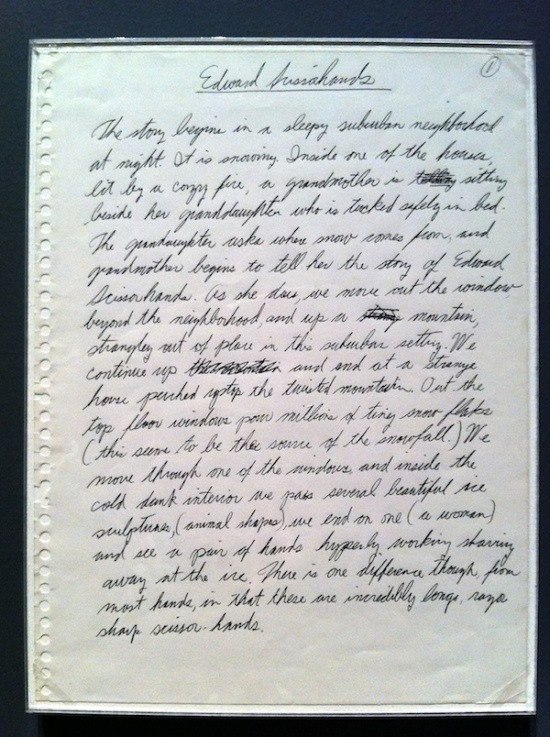 1
Edward Scissorhands
The story begins in a sleepy suburban neighborhood
at night. It is snowing. Inside one of the houses,
lit by a cozy fire, a grandmother is sitting
beside her granddaughter who is tucked safely in bed.
The grandaughter asks where snow comes from, and
grandmother begins to tell her the story of Edward
Scissorhands. As she does, we move out the window
beyond the neighborhood, and up a mountain,
strangley out of place in this suburban setting. We
continue up and end at a strange
house perched ontop the twisted mountain. Out the
top floor windows pour millions of tiny snow flakes
(this seems to be the source of the snowfall.) We
move through one of the windows, and inside the
cold dank interior we pass several beautiful ice
sculptures, (animal shapes), we end on one (a woman)
and see a pair of hands working shaving
away at the ice. There is one difference though, from
most hands, in that these are incredibly long, razor
sharp scissor-hands.